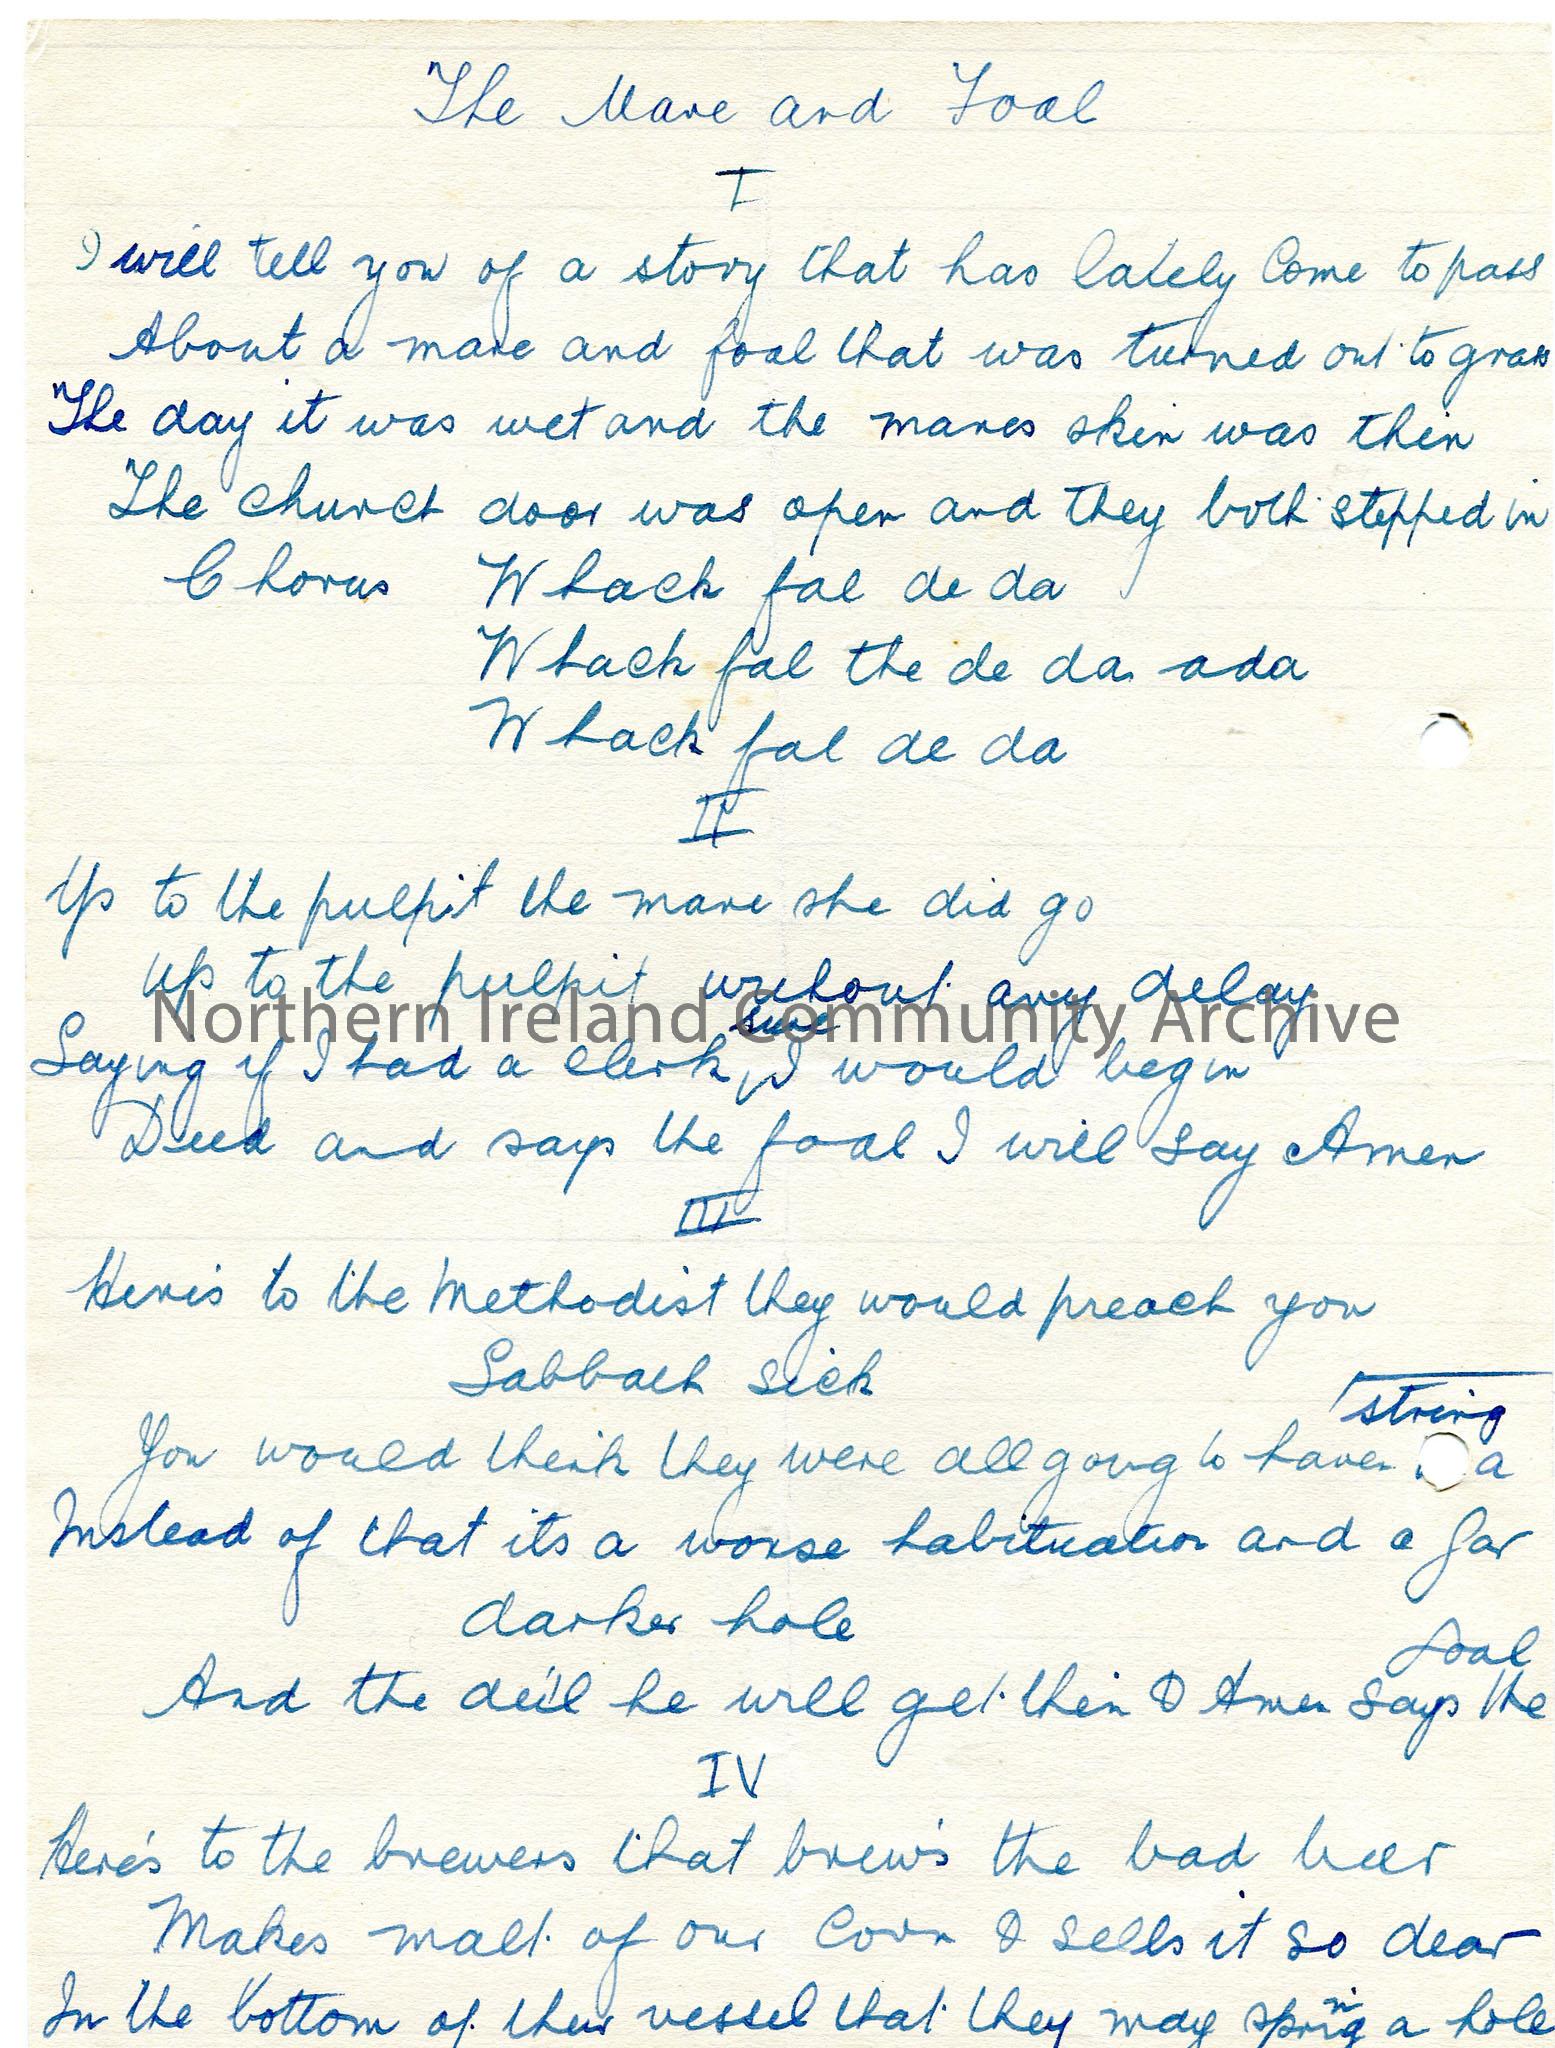 The Mare and Foal
I
I will tell you of a story that has lately Come to pass
About a mare and foal that was turned out to grass
The day it was wet and the mares skin was thin
The church door was open and they both stepped in
Chorus Whack fal de da
Whack fal the de da ada
Whack fal de da
II
Up to the pulpit the mare she did go
Up to the pulpit without any delay
Northern Ireland Community Archive
sure
Saying if I had a clerk, I would begin
Deed and says the foal I will say Amen
III
Here's to the Methodist they would preach you
Sabbath sick
string
You would think they were all going to have a
Instead of that its a worse habituation and a far
darker hole
foal
And the de'il he will get then & Amen says the
IV
Here's to the brewers that brew's the bad beer
Makes malt of our Corn & sells it so dear
In the bottom of their vessel that they may spring a hole